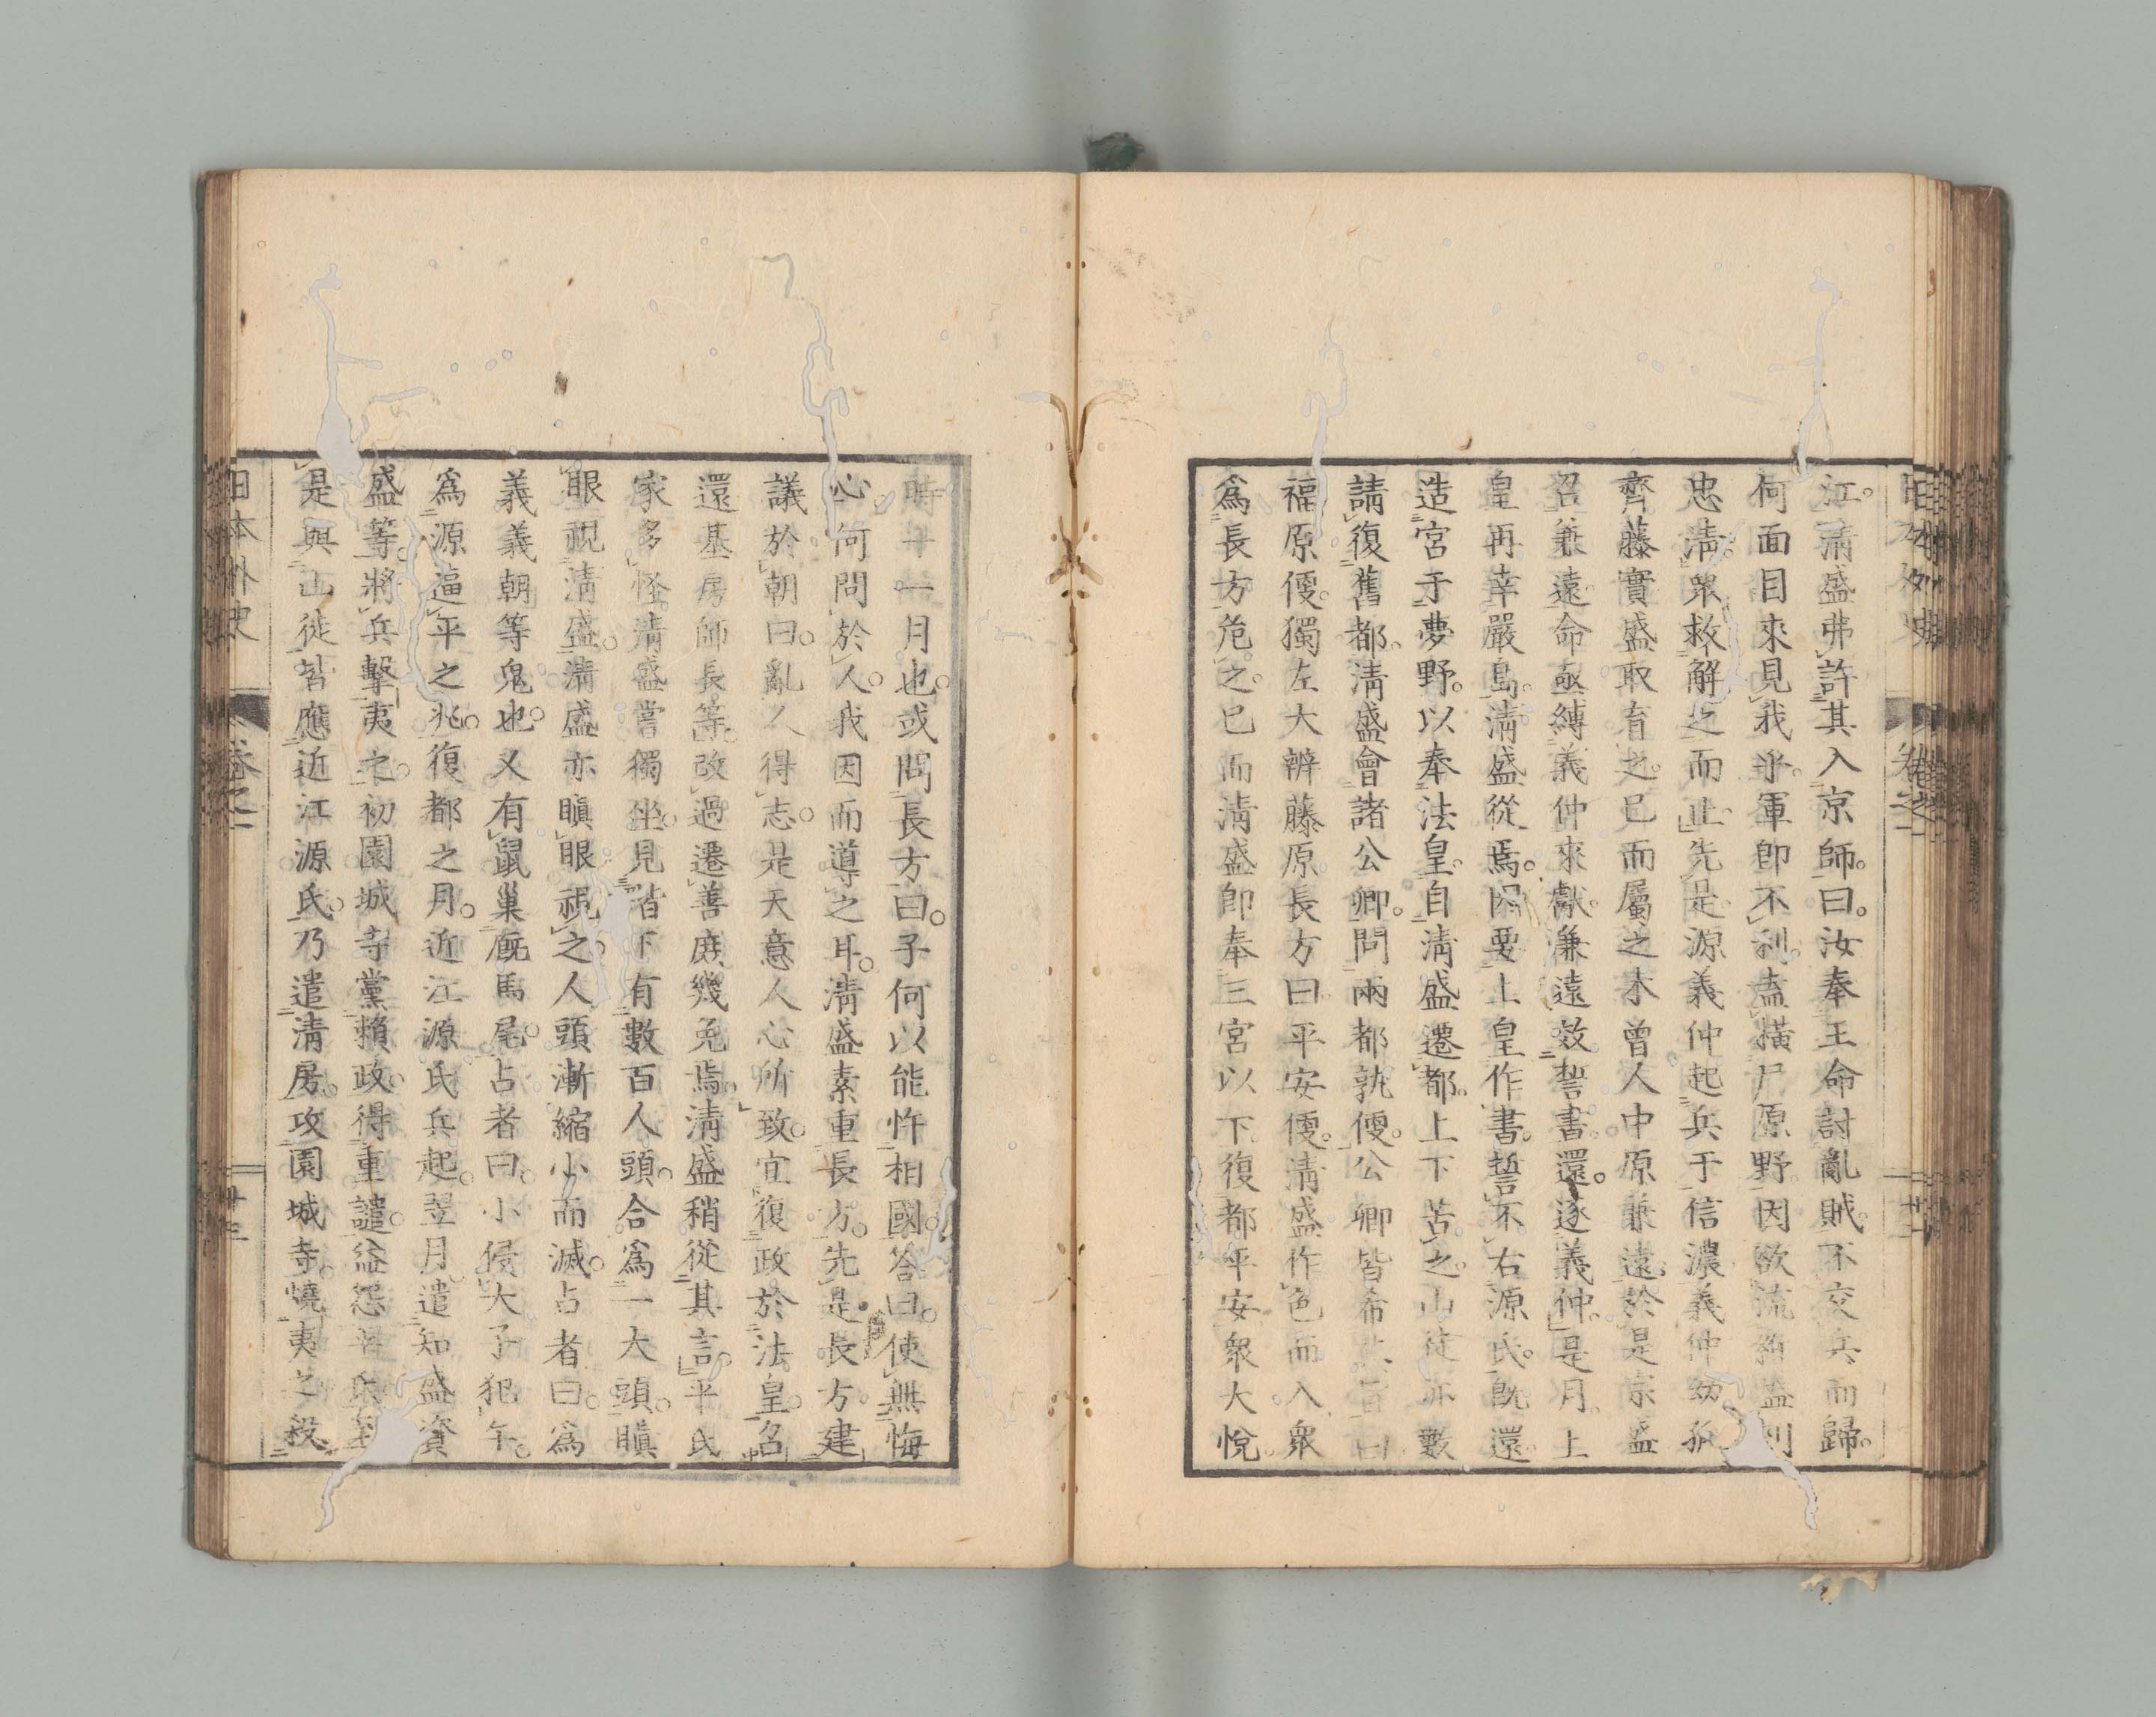 江。清盛弗許其入京師。曰。汝奉王命討亂賊。不交兵而歸。
何面目來見我乎。軍卽不利。盍橫尸原野。因欲流維盛
忠淸。衆救解之而止。先是源義仲起兵于信濃。義仲幼孤
齊藤實盛取育之。已而屬之木曾人中原兼遠。於是宗盛
召兼遠。命亟縛義仲來獻。兼遠效誓書還。逐義仲。是月。上
皇再幸嚴島。淸盛從焉。因要上皇作書。誓不右源氏。旣還。
造宮于夢野。以奉法皇。自淸盛遷都。上下苦之。山徒亦數
請復舊都。淸盛會諸公卿。問兩都孰便。公卿皆希其旨曰
福原便。獨左大辨藤原長方曰。平安便。淸盛作色而入。衆
爲長方危之。已而淸盛卽奉三宮以下。復都平安。衆大悅。
時十一月也。或問長方曰。子何以能忤相國。答曰。使無悔
心。何問於人。我因而導之耳。淸盛素重長方。先是。長方建
議於朝曰。亂人得志。是天意人心所致。宜復政於法皇。召
還基房師長等。改過遷善。庶幾免焉。淸盛稍從其言。平氏
家多怪。淸盛嘗獨坐。見階下有數百人頭。合爲一大頭。瞋
眼視淸盛。淸盛亦瞋眼視之。人頭漸縮小而滅。占者曰。爲
義義朝等鬼也。又有鼠巢廐馬尾。占者曰。小侵大。子犯午。
爲源逼平之兆。復都之月。近江源氏兵起。翌月遣知盛資
盛等。將兵擊夷之。初園城寺黨賴政。得重譴。益怨平氏。至
是與山徒皆應近江源氏。乃遣淸房。攻園城寺。燒夷之。殺
日本外史
卷之一